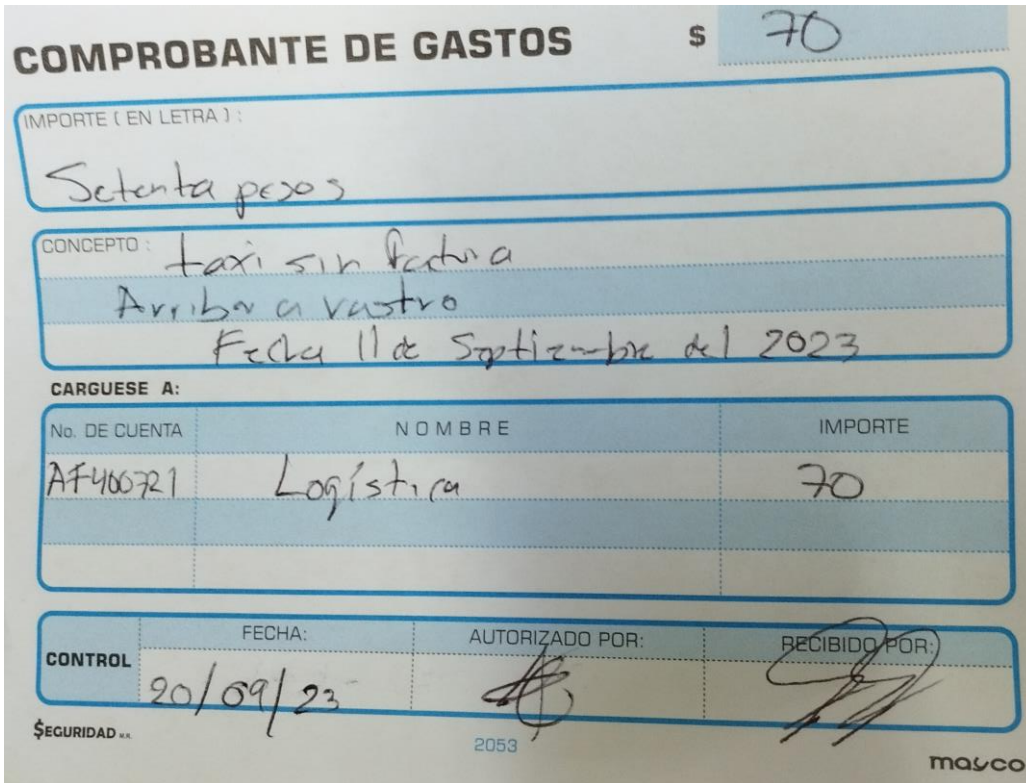 COMPROBANTE DE GASTOS $ 70
IMPORTE ( EN LETRA ) :
Setenta pesos
CONCEPTO : taxi sin factura
Arribar a rastro
Fecha 11 de Septiembre del 2023
CARGUESE A:
No. DE CUENTA NOMBRE IMPORTE
AF400721 Logística 70
CONTROL FECHA: AUTORIZADO POR: RECIBIDO POR:
20/09/23
$EGURIDAD M.R. 2053 mayco